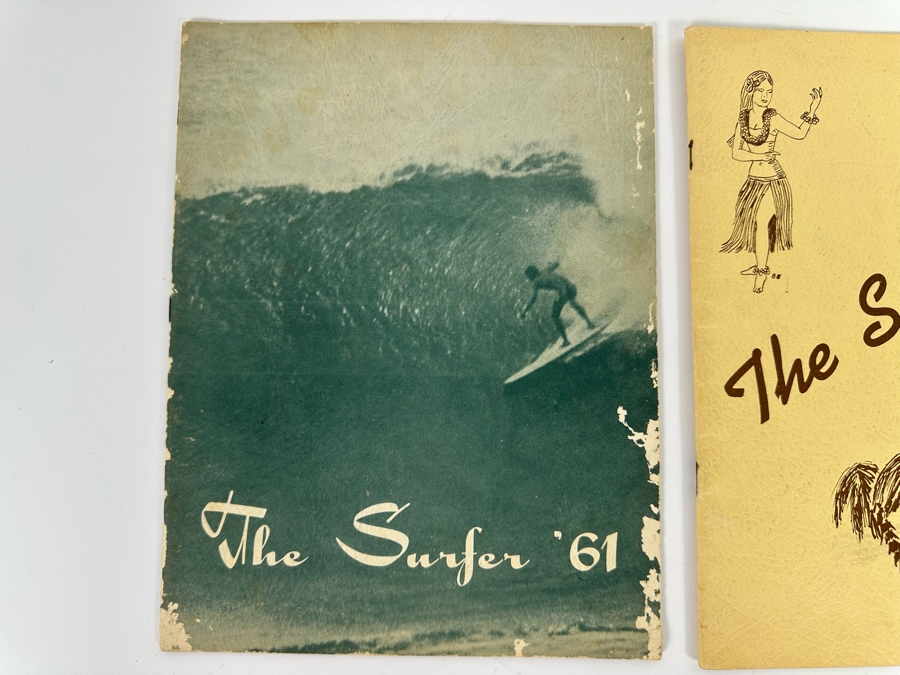 The Surfer '61
The S